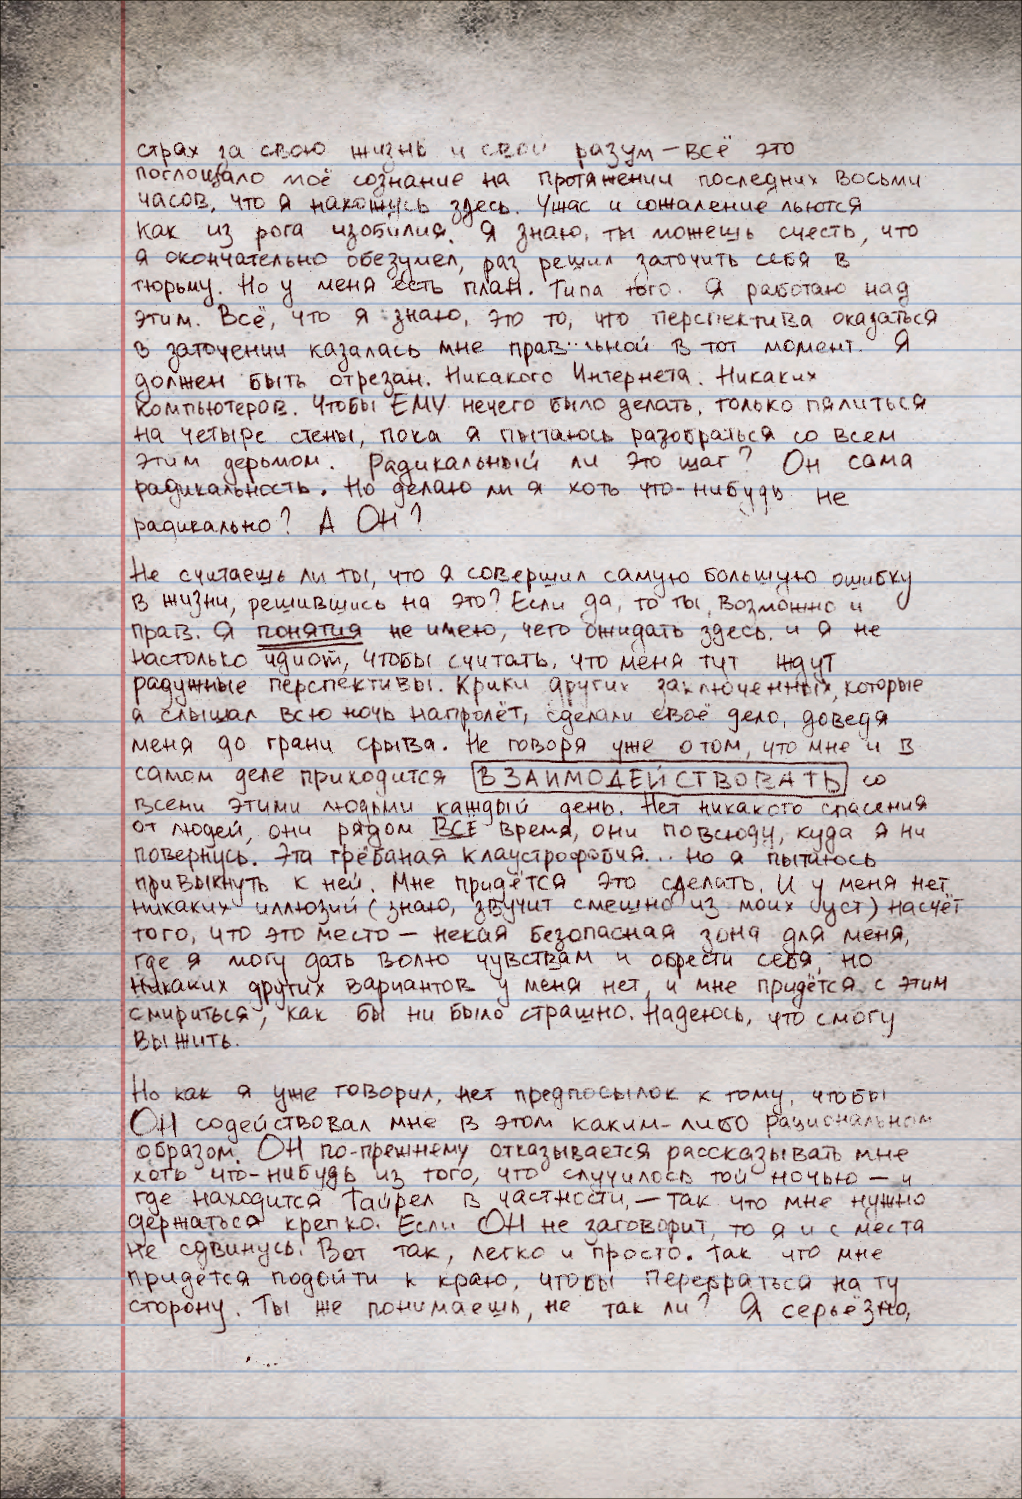 страх за свою жизнь и свой разум – всё это
поглощало моё сознание на протяжении последних восьми
часов, что я нахожусь здесь. Ужас и сожаление льются
как из рога изобилия. Я знаю, ты можешь счесть, что
я окончательно обезумел, раз решил заточить себя в
тюрьму. Но у меня есть план. Типа того. Я работаю над
этим. Всё, что я знаю, это то, что перспектива оказаться
в заточении казалась мне прав..льной в тот момент. Я
должен быть отрезан. Никакого Интернета. Никаких
компьютеров. Чтобы ЕМУ нечего было делать, только пялиться
на четыре стены, пока я пытаюсь разобраться со всем
этим дерьмом. Радикальный ли это шаг? Он сама
радикальность. Но делаю ли я хоть что-нибудь не
радикально? А ОН?
Не считаешь ли ты, что я совершил самую большую ошибку
в жизни, решившись на это? Если да, то ты, возможно и
прав. Я понятия не имею, чего ожидать здесь. и я не
настолько идиот, чтобы считать, что меня тут ждут
радужные перспективы. Крики других заключенных, которые
я слышал всю ночь напролёт, сделали своё дело, доведя
меня до грани срыва. Не говоря уже о том, что мне и в
самом деле приходится ВЗАИМОДЕЙСТВОВАТЬ со
всеми этими людьми каждый день. Нет никакого спасения
от людей, они рядом ВСЕ время, они повсюду, куда я ни
повернусь. Эта грёбаная клаустрофобия... но я пытаюсь
привыкнуть к ней. Мне придётся это сделать. И у меня нет
никаких иллюзий (знаю, звучит смешно из моих уст) насчёт
того, что это место – некая безопасная зона для меня,
где я могу дать волю чувствам и обрести себя, но
никаких других вариантов у меня нет, и мне придётся с этим
смириться, как бы ни было страшно. Надеюсь, что смогу
выжить.
Но как я уже говорил, нет предпосылок к тому, чтобы
ОН содействовал мне в этом каким-либо рациональном
образом. ОН по-прежнему отказывается рассказывать мне
хоть что-нибудь из того, что случилось той ночью – и
где находится Тайрел в частности, – так что мне нужно
держаться крепко. Если ОН не заговорит, то я и с места
не сдвинусь. Вот так, легко и просто. Так что мне
придётся подойти к краю, чтобы перебраться на ту
сторону. Ты же понимаешь, не так ли? Я серьёзно,